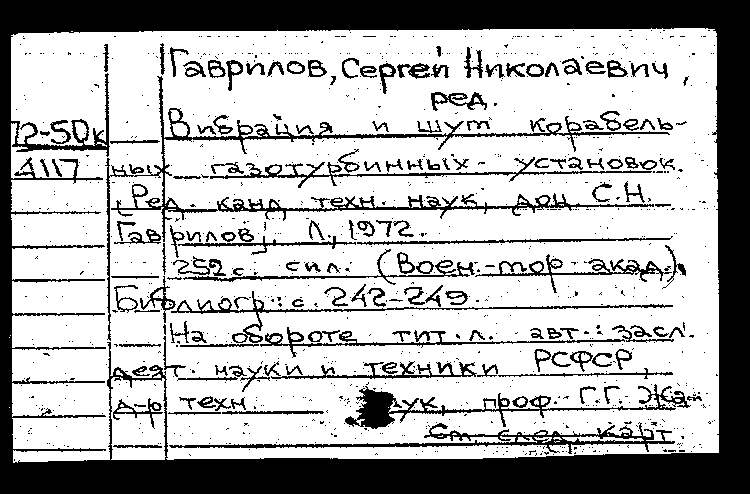 Гаврилов, Сергей Николаевич,
ред.
72-50к
Вибрация и шум корабель-
А117
ных газотурбинных установок.
[Ред. канд. техн. наук, доц. С.Н.
Гаврилов]. Л., 1972.
252 с. с ил. (Воен.-мор. акад.).
Библиогр.: с. 242-249.
На обороте тит. л. авт.: засл.
деят. науки и техники РСФСР,
д-р техн. проф. Г.Г. Жа-
См. след. карт.